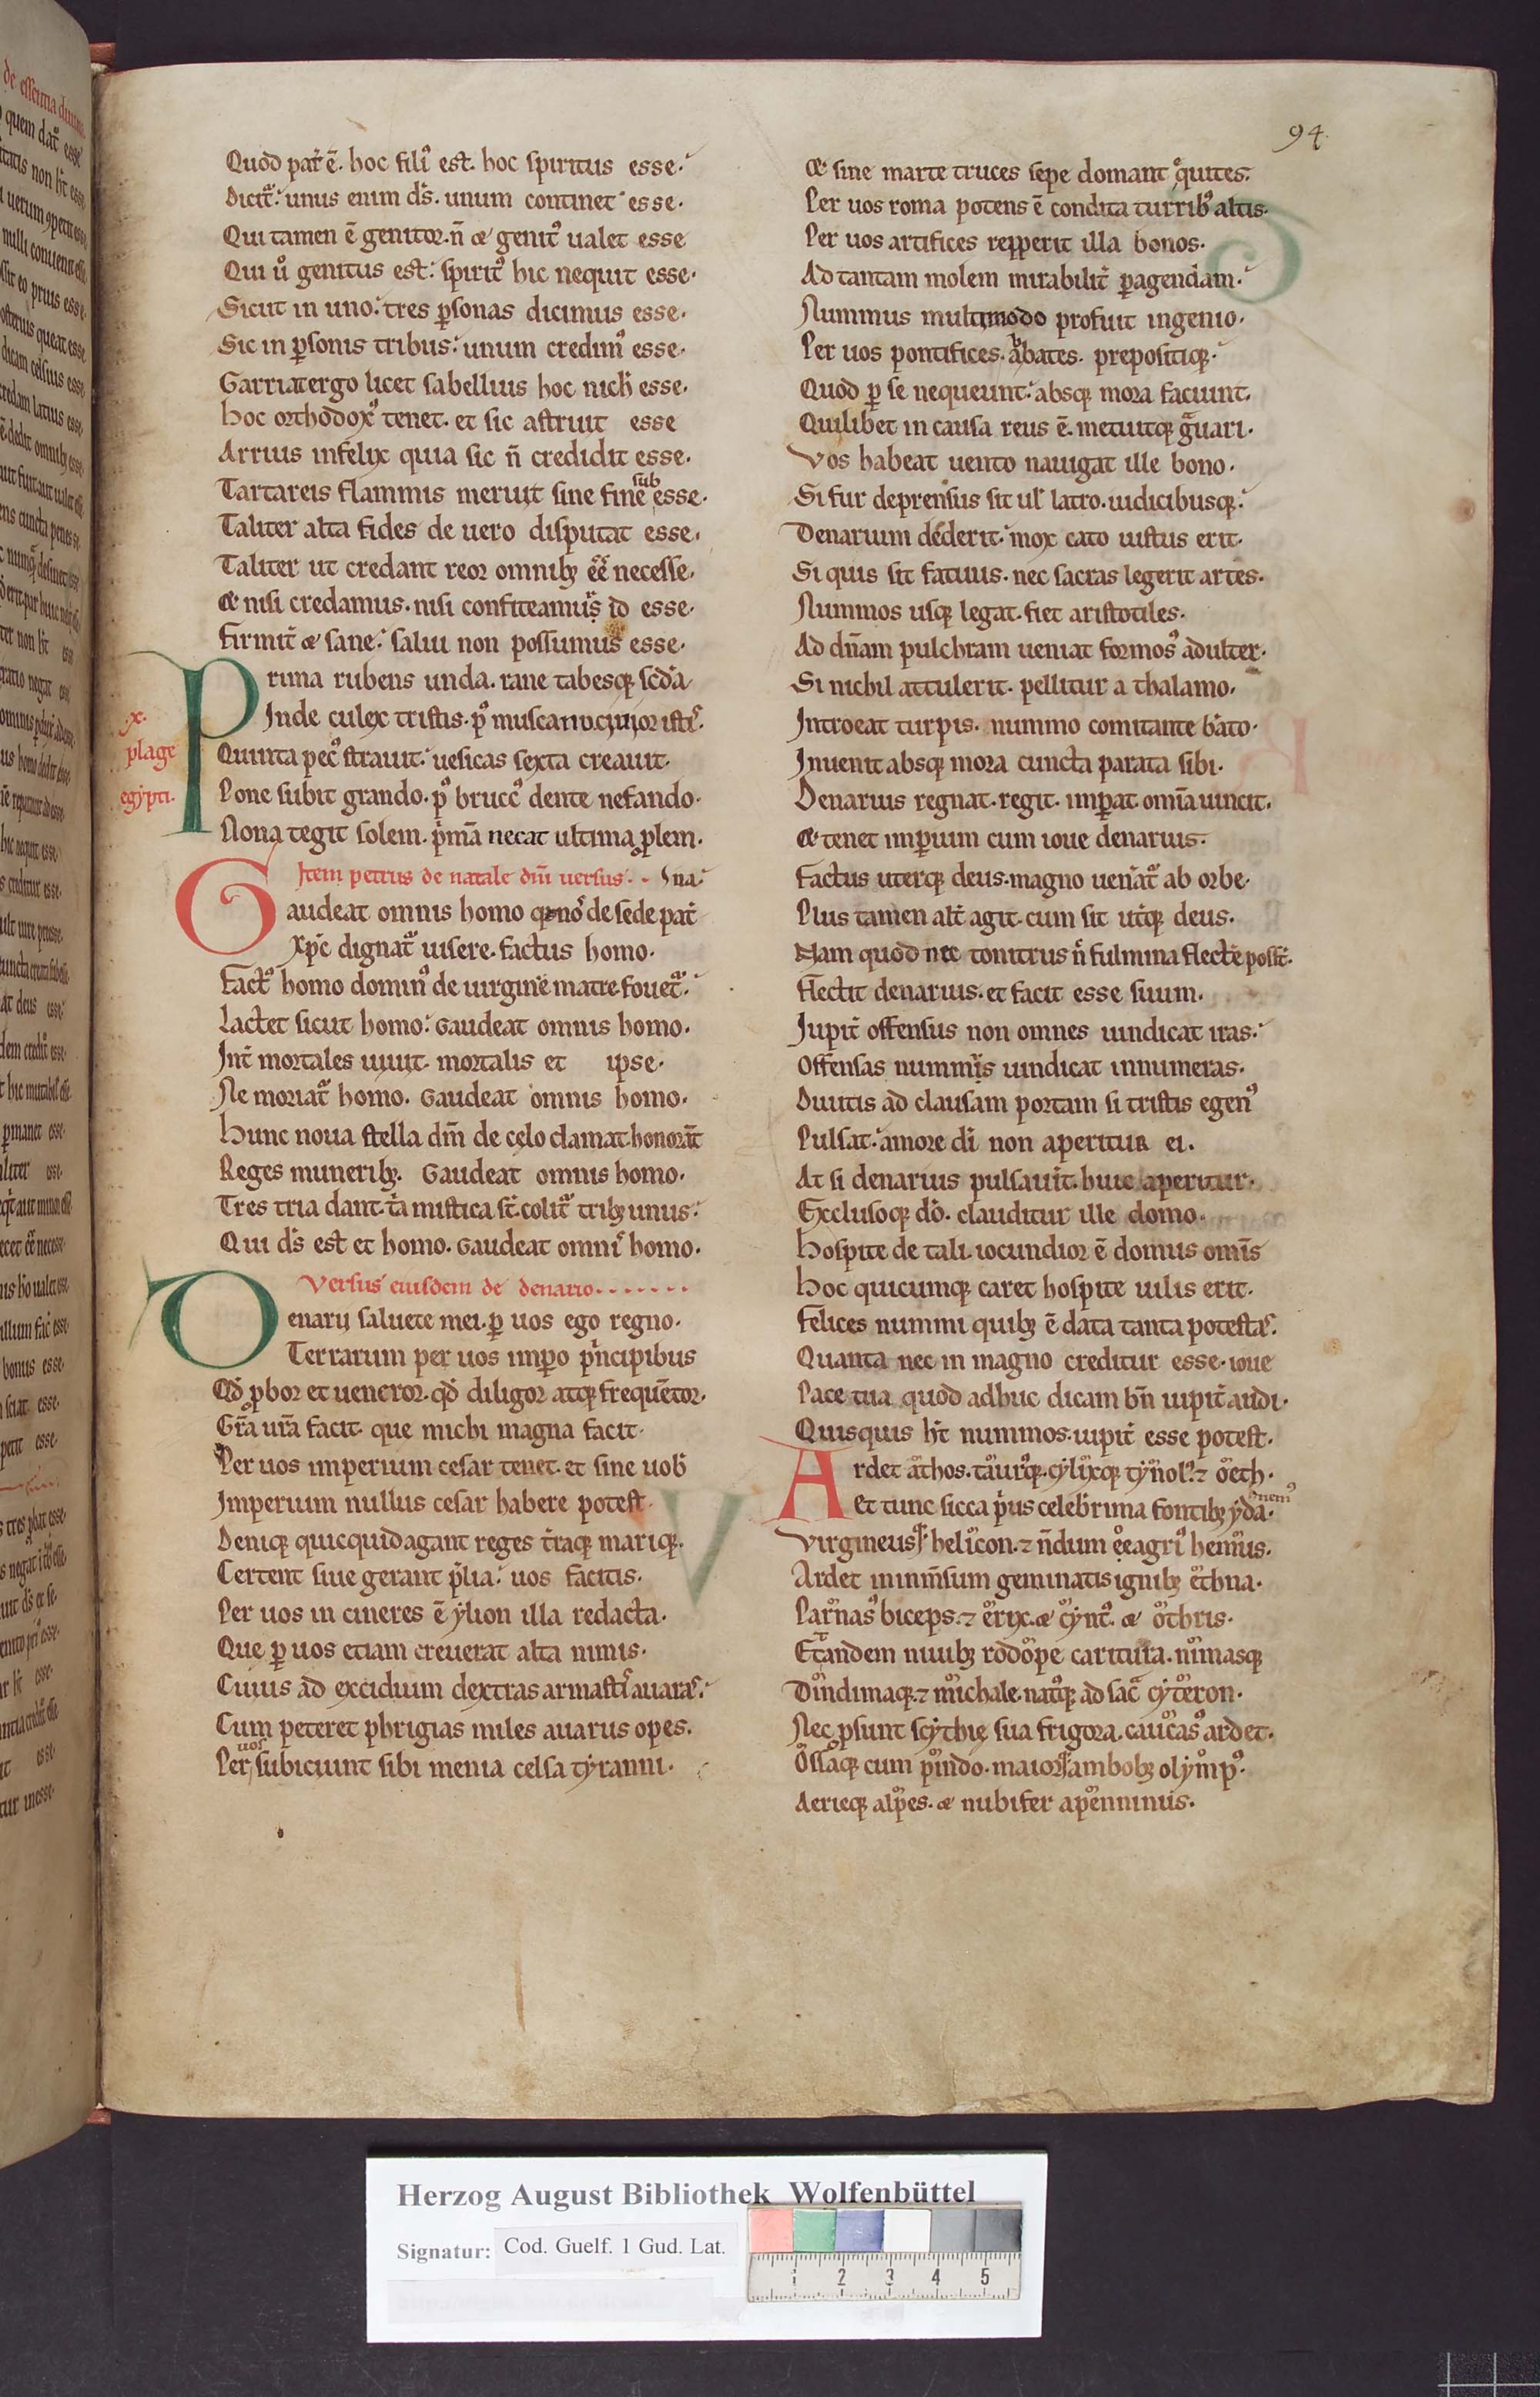 94.
Quod pat̄ ē. hoc filī est. hoc spiritus esse.
Dicit᷑. unus enim dś. unum continet esse.
Qui tamen ē genitor. n̄ & genit᷒ ualet esse
Qui ů genitus est: spirit᷒ hic nequit esse.
Sicut in uno: tres ꝑsonas dicimus esse.
Sic in ꝑsonis tribus: unum credim᷒ esse.
Garriat ergo licet sabellius hoc nich̄ esse.
Hoc orthodox᷒ tenet. et sic astruit esse
Arrius infelix quia sic n̄ credidit esse.
Tartareis flammis meruit sine fine sub esse.
Taliter alta fides de uero disputat esse.
Taliter ut credant reor omnibꝫ ēē necesse.
& nisi credamus. nisi confiteamur id esse.
Firmit̄ & sane: salui non possumus esse.
x. plage egipti.
Prima rubens unda. rane tabesqꝫ scd̄a
Inde culex tristis. p᷒ musca
Quinta pec᷒ strauit: uesicas sexta creauit.
Pone subit grando. p᷒ brucc᷒ dente nefando.
Nona tegit solem. p̄mā necat ultima ꝓlem.
Item petrus de natale dm̄i uersus.
Gaudeat omnis homo de sede pat̄na
Xpc̄ dignat᷑ uisere. factus homo.
Fact᷒ homo domin᷒ de uirgine matre fouet᷑.
Lactet sicut homo: Gaudeat omnis homo.
Int̄ mortales uiuit. mortalis et ipse.
Ne moriat᷑ homo. Gaudeat omnis homo.
Hunc noua stella dm̄ de celo clamat. honorāt
Reges muneribꝫ. Gaudeat omnis homo.
Tres tria dant. mistica colit᷑ tribꝫ unus:
Qui dś est et homo. Gaudeat omnis homo.
Versus eiusdem de denario.......
Denarii saluete mei. ꝑ uos ego regno.
Terrarum per uos impo p̄ncipibus
Qd̄ ꝓbor et ueneror. qd̄ diligor atqꝫ frequētor.
Gr̄a ur̄a facit. que michi magna facit.
Per uos imperium cesar tenet. et sine uob̄
Imperium nullus cesar habere potest.
Deniqꝫ quicquid agant reges t̄raqꝫ mariqꝫ.
Certent siue gerant p̄lia: uos facitis.
Per uos in cineres ē ylion illa redacta.
Que ꝑ uos etiam creuerat alta nimis.
Cuius ad excidium dextras armastis auaras.
Cum peteret phrigias miles auarus opes.
Per uos subiciunt sibi menia celsa tyranni.
& sine marte truces sepe domant equites.
Per uos roma potens ē condita turrib᷒ altis.
Per uos artifices repperit illa bonos.
Ad tantam molem mirabilit̄ ꝑagendam.
Nummus multimodo profuit ingenio.
Per uos pontifices. abbates. prepositiqꝫ.
Quod ꝑ se nequeunt: absqꝫ mora faciunt.
Quilibet in causa reus ē. metuitqꝫ grauari.
Vos habeat uento nauigat ille bono.
Si fur deprensus sit ul̄ latro. iudicibusqꝫ.
Denarium dederit: mox cato iustus erit.
Si quis sit fatuus. nec sacras legerit artes.
Nummos usqꝫ legat. fiet aristotiles.
Ad dn̄am pulchram ueniat formos᷒ adulter.
Si nichil attulerit. pellitur a thalamo.
Introeat turpis. nummo comitante
Inuenit absqꝫ mora cuncta parata sibi.
Denarius regnat. regit. imꝑat. omīa uincit.
& tenet imꝑium cum ioue denarius.
Factus uterqꝫ deus. magno uenerat᷑ ab orbe.
Plus tamen alt̄ agit. cum sit ut̄qꝫ deus.
Nam quod nec tonitrus n̄ fulmina flectē poss̄t.
Flectit denarius. et facit esse suum.
Iupit̄ offensus non omnes uindicat iras.
Offensas nummus uindicat innumeras.
Diuitis ad clausam portam si tristis egen᷒
Pulsat: amore di non aperitur ei.
At si denarius pulsauit. huic aperitur.
Exclusoqꝫ dō. clauditur ille domo.
Hospite de tali. iocundior ē domus omīs
Hoc quicumqꝫ caret hospite uilis erit.
Felices nummi quibꝫ ē data tanta potestas.
Quanta nec in magno creditur esse ioue
Pace tua quod adhuc dicam bn̄ iupit̄ audi.
Quisquis h̄t nummos. iupit̄ esse potest.
Ardet athos. taurusqꝫ. cylixqꝫ tymol᷒. & oeth.
et tunc sicca p̄us celeberrima fontibꝫ yda.
Virgineusqꝫ helicon. & n̄dum oeagri᷒ hemus.
Ardet inmēsum geminatis ignibꝫ ethna.
Parnas᷒ biceps. & erix. & cynt᷒. & othris.
Et tandem niuibꝫ rodope caritura. mimasqꝫ
Dindimaqꝫ. & michale. natusqꝫ ad sac̄ cyteron.
Nec ꝓsunt scythię sua frigora. caucas᷒ ardet.
Ossaqꝫ cum pindo. maiorqꝫ ambobꝫ olymp᷒.
Aerieqꝫ alpes. & nubifer apenninus.
Herzog August Bibliothek Wolfenbüttel
Signatur: Cod. Guelf. 1 Gud. Lat.
1 2 3 4 5